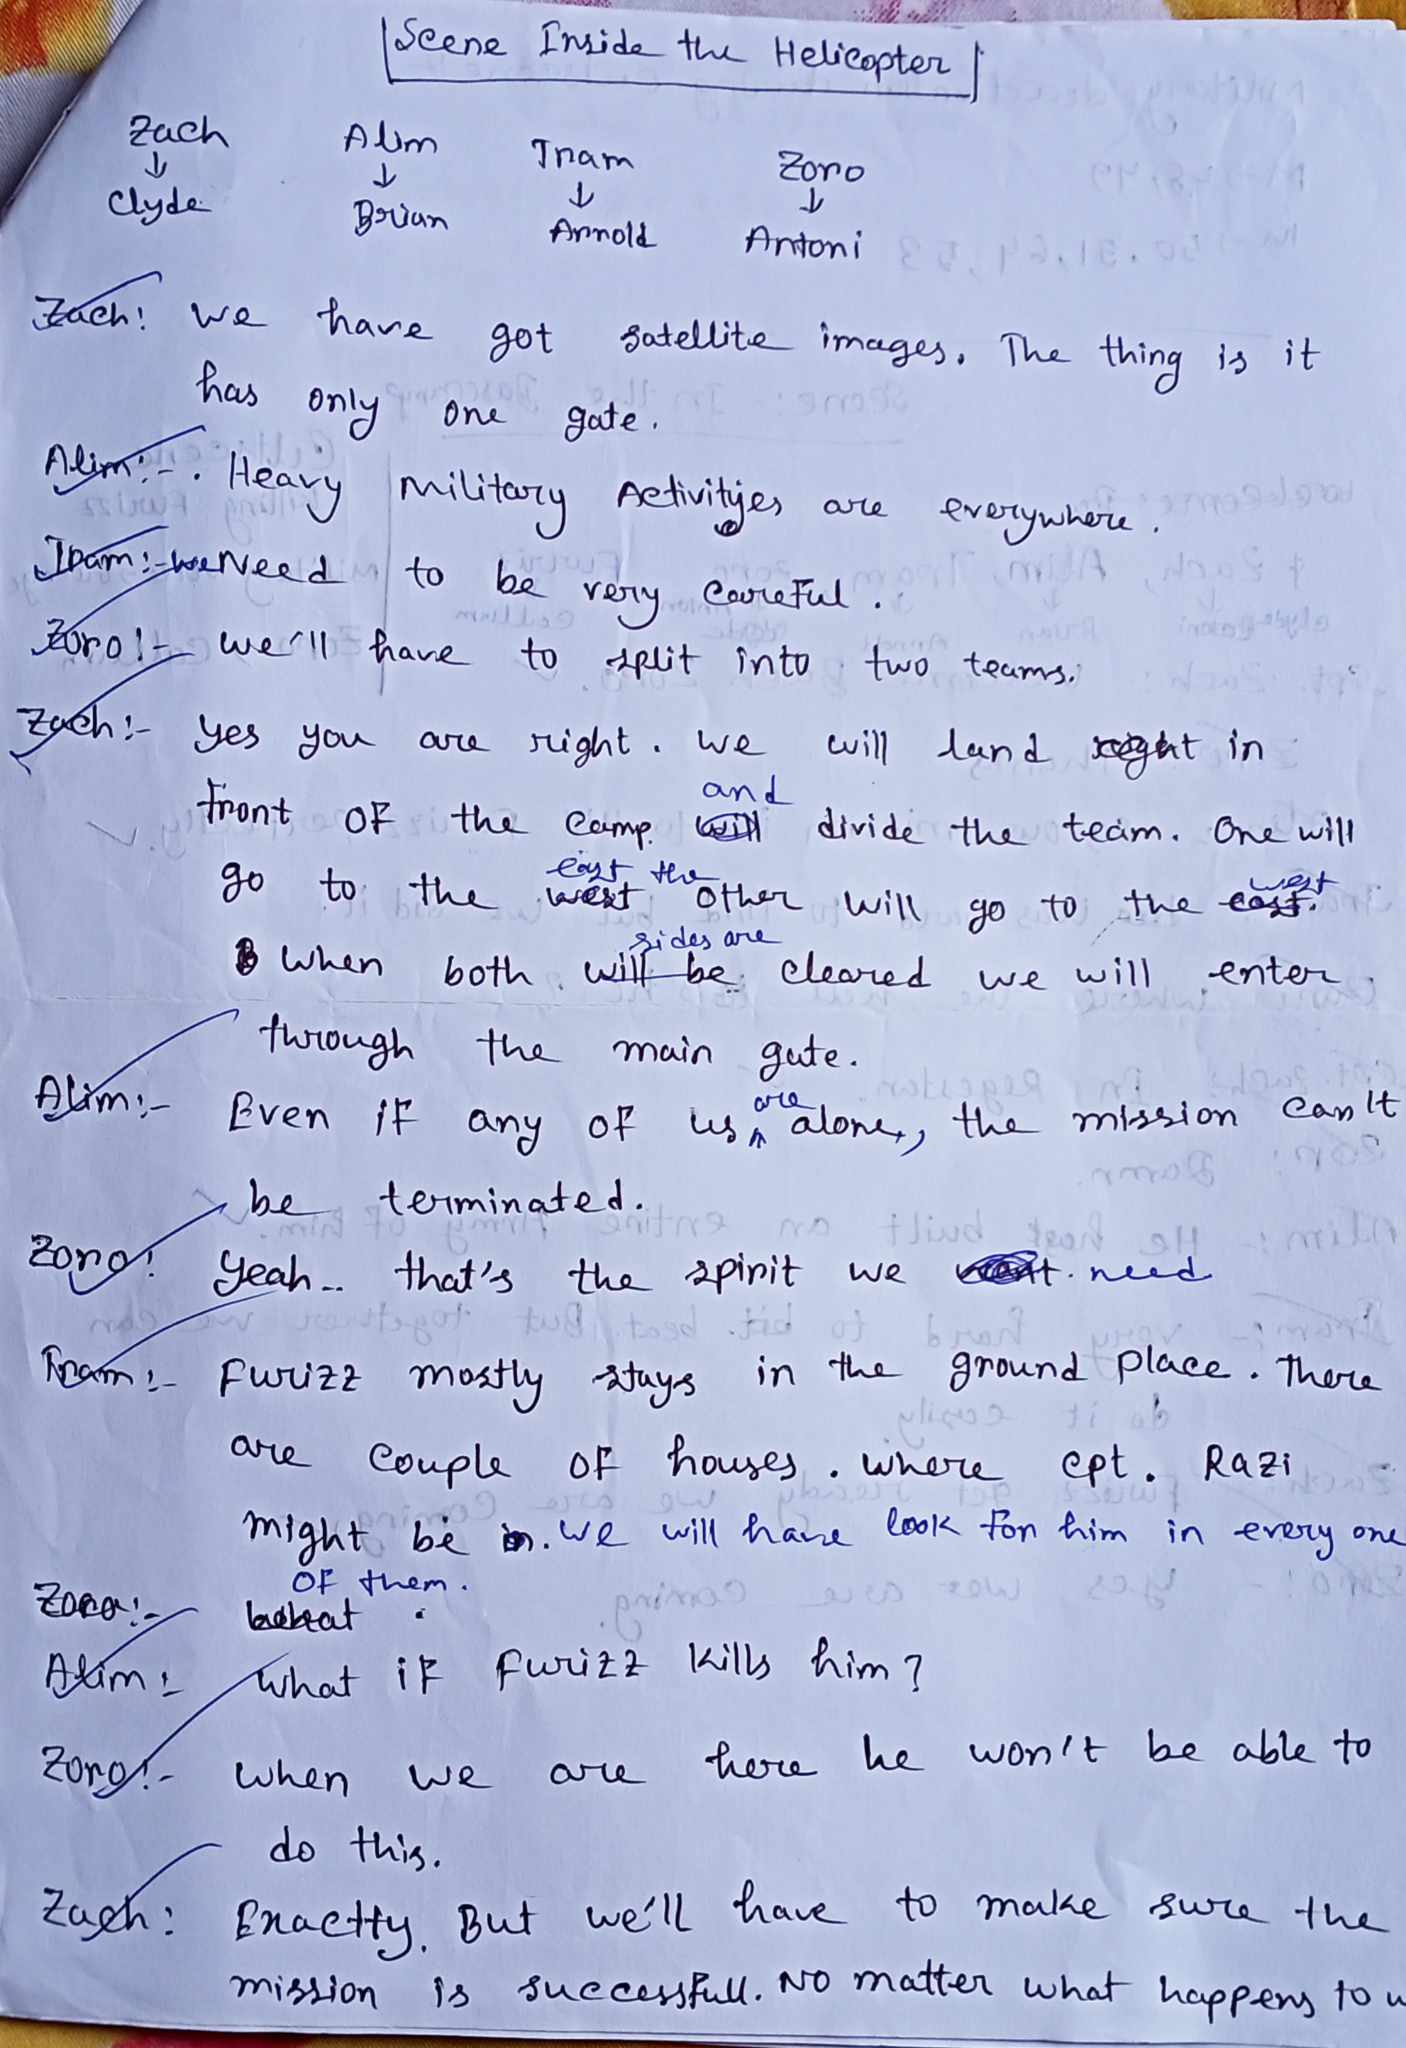 Scene Inside the Helicopter
Zach Alim Inam Zoro
↓ ↓ ↓ ↓
Clyde Brian Arnold Antoni
Zach: we have got satellite images. The thing is it
has only one gate.
Alim:- Heavy Military Activities are everywhere.
Inam:- we Need to be very careful.
Zoro:- we'll have to split into two teams.
Zach:- Yes you are right. we will land right in
front of the camp. and divide the team. One will
go to the east the other will go to the west.
when both sides are cleared we will enter
through the main gate.
Alim:- Even if any of us are alone, the mission can't
be terminated.
Zoro: Yeah.. that's the spirit we need
Inam:- Furizz mostly stays in the ground place. There
are couple of houses. where cpt. Razi
might be in. we will have look for him in every one
of them.
Zoro:-
Alim:- what if Furizz kills him?
Zoro:- when we are here he won't be able to
do this.
Zach: Exactly. But we'll have to make sure the
mission is successfull. No matter what happens to